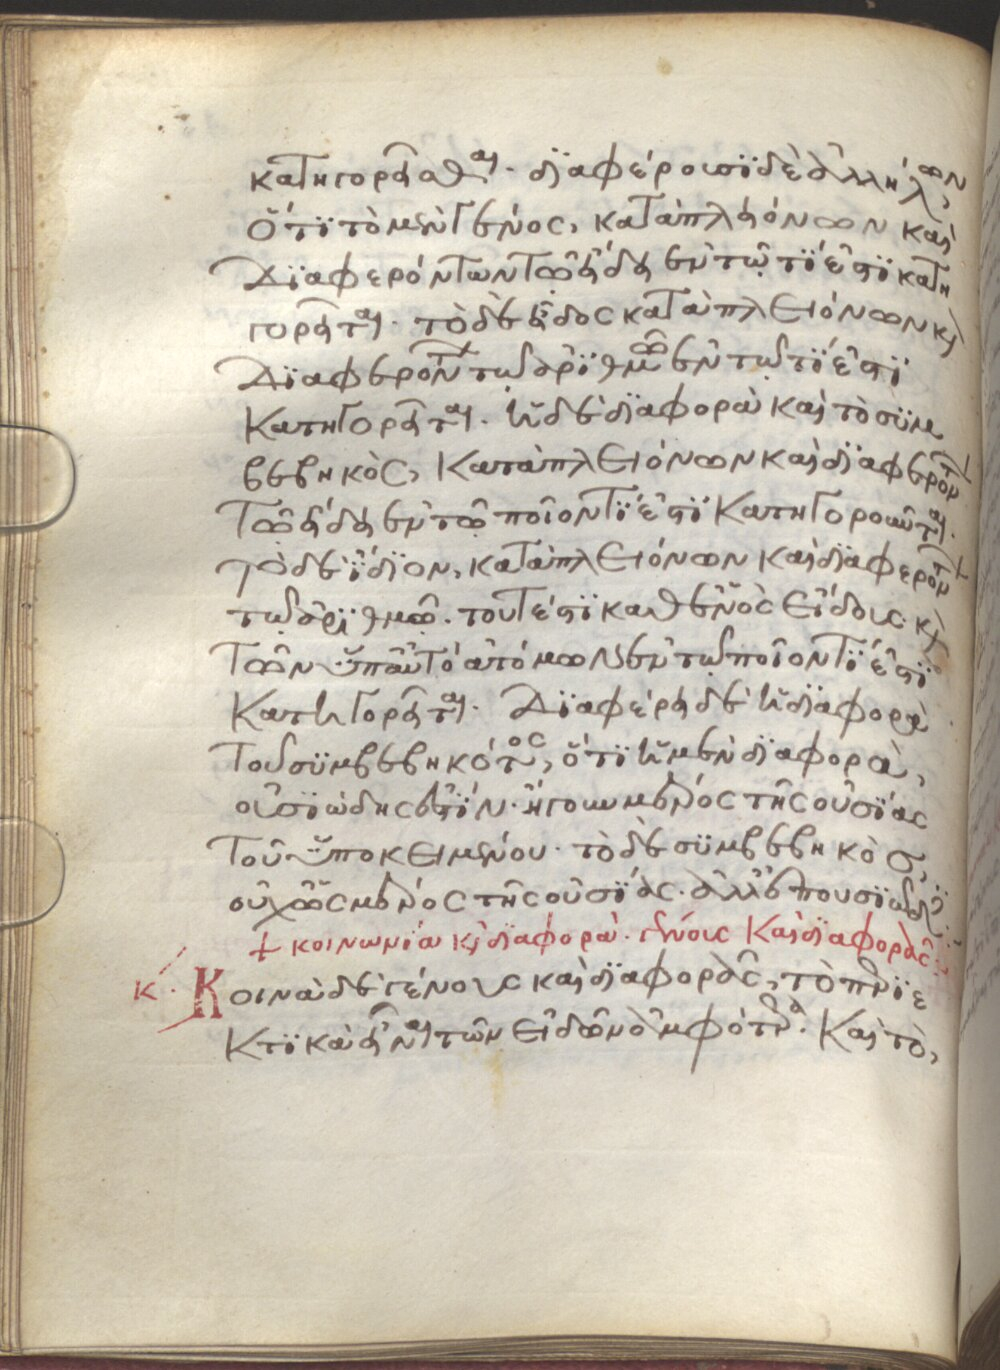 κατηγορεῖσθαι· διαφέρουσι δὲ ἀλλήλων,
ὅτι τὸ μὲν γένος, κατὰ πλειόνων καὶ
διαφερόντων τῶ εἴδει ἐν τῶ τί ἐστι κατη
γορεῖται· τὸ δὲ εἶδος κατὰ πλειόνων κὶ
διαφερόντων τῶ ἀριθμῶ ἐν τῶ τί ἐστι
κατηγορεῖται· ἡ δὲ διαφορὰ καὶ τὸ συμ
βεβηκὸς, κατὰ πλειόνων καὶ διαφερόντων
τῶ εἴδει ἐν τῶ ποῖόν τί ἐστι κατηγοροῦνται·
τὸ δὲ ἴδιον, κατὰ πλειόνων καὶ διαφερόντων
τῶ ἀριθμῶ· τουτέστι καθ ἑνὸς εἴδους· κὶ
τῶν ὑπ αὐτὸ ἀτόμων ἐν τῶ ποῖόν τί ἐστι
κατηγορεῖται· Διαφέρει δὲ ἡ διαφορὰ
τοῦ συμβεβηκότος, ὅτι ἡ μὲν διαφορὰ,
οὐσιώδης ἐστίν· ἤγουν μέρος τῆς οὐσίας
τοῦ ὑποκειμένου· τὸ δὲ συμβεβηκὸς,
οὐχ ὡς μέρος τῆς οὐσίας· ἀλλ ἐπουσιῶδες·
+ κοινωνία κὶ διαφορὰ· γένους καὶ διαφορᾶς·
κ· Κοινὰ δὲ γένους καὶ διαφορᾶς, τὸ περιε
κτικὰ εἶναι τῶν εἰδῶν ἀμφότερα· Καὶ τὸ,